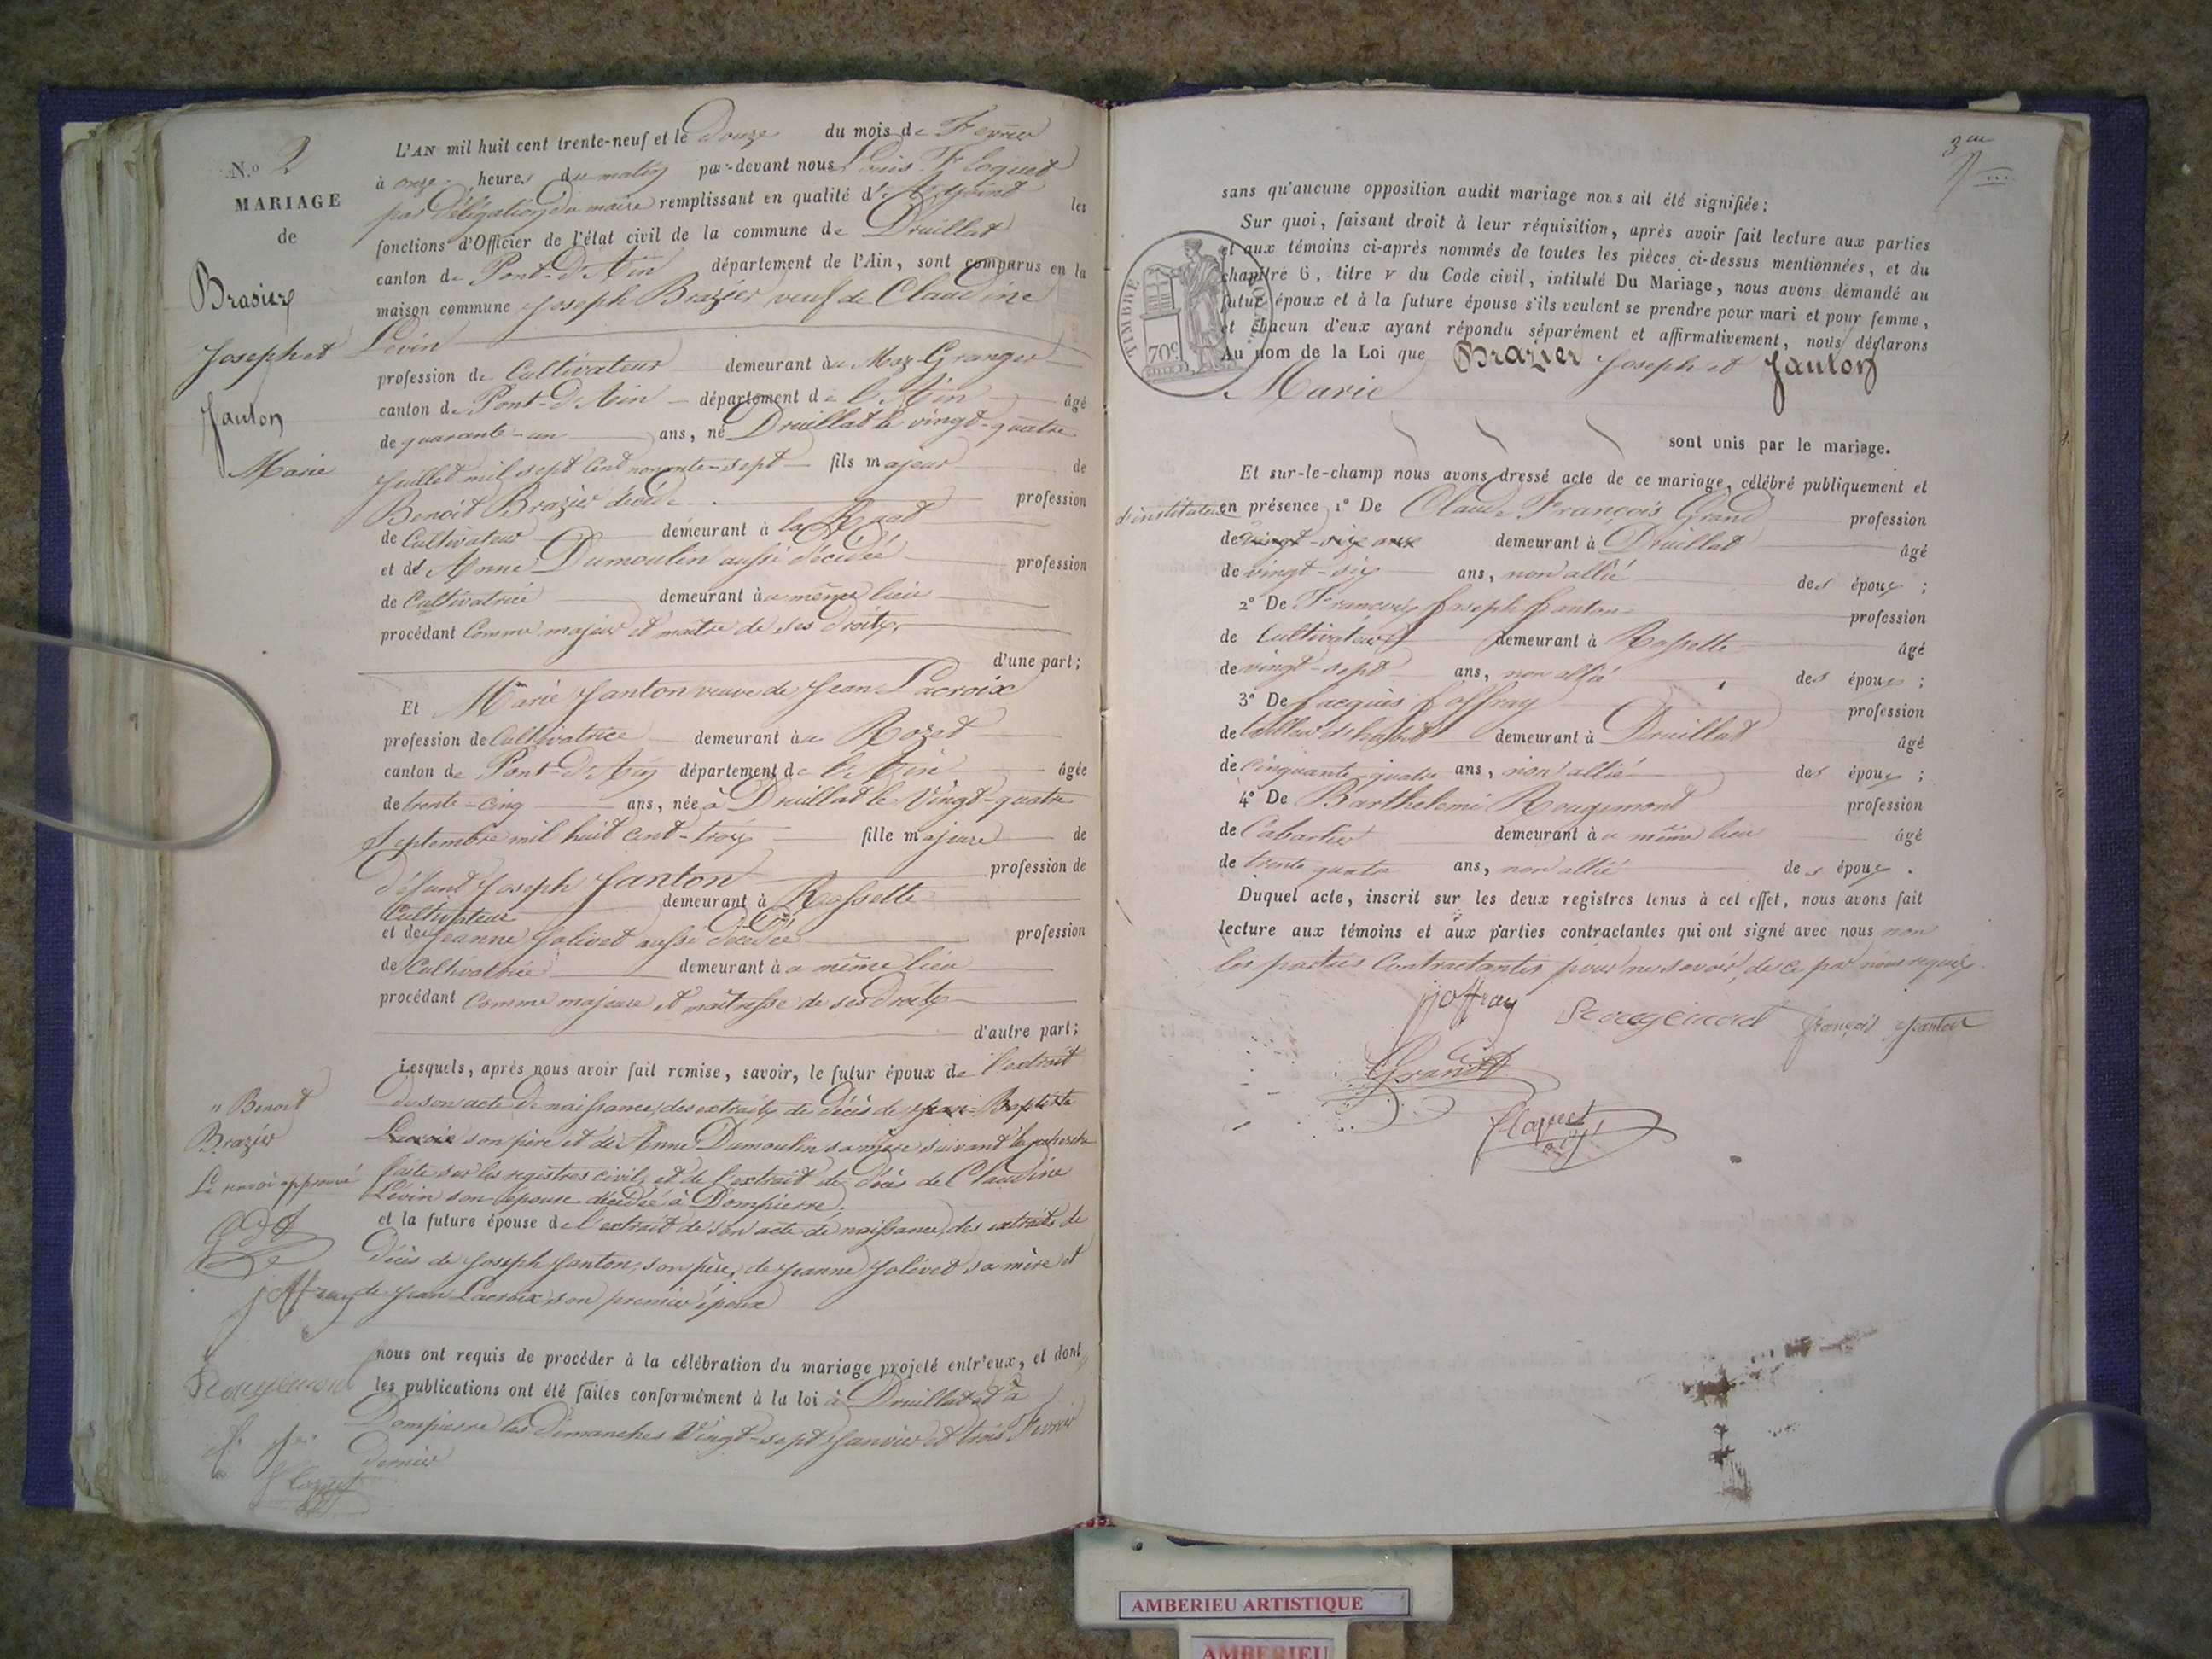 N.º 2
MARIAGE
de
Brasier
Joseph et
Janton
Marie
L'AN mil huit cent trente-neuf et le Douze du mois de Fevrier
à onze heures du matin par-devant nous Louis Floquet
par délégation du maire remplissant en qualité d'Adjoint les
fonctions d'Officier de l'état civil de la commune de Druillat
canton de Pont-d'Ain département de l'Ain, sont comparus en la
maison commune Joseph Brazier veuf de Claudine
Levin
profession de Cultivateur demeurant au Maz-Granger
canton de Pont-d'Ain département de l'Ain âgé
de quarante-un ans, né Druillat le vingt-quatre
Juillet mil sept cent nonante-sept fils majeur de
Benoit Brazier décédé profession
de Cultivateur demeurant à
et de Anne Dumoulin aussi décédée profession
de Cultivatrice demeurant au même lieu
procédant Comme majeur et maître de ses droits,
d'une part;
Et Marie Janton veuve de Jean Lacroix
profession de Cultivatrice demeurant au Rozet
canton de Pont-d'Ain département de l'Ain âgée
de trente-cinq ans, née à Druillat le Vingt-quatre
Septembre mil huit cent-trois fille majeure de
défunt Joseph Janton profession de
Cultivateur demeurant à Rossette
et de Jeanne Jolivet aussi décédée profession
de Cultivatrice demeurant au même lieu
procédant Comme majeure et maîtresse de ses droits
d'autre part;
Lesquels, après nous avoir fait remise, savoir, le futur époux de l'extrait
de son acte de naissance, des extraits de décès de Jean-Baptiste
" Benoit
Brazier
Lacroix son père et de Anne Dumoulin sa mère suivant la recherche
Le renvoi approuvé
faite sur les registres civils et de l'extrait de décès de Claudine
Levin son épouse décédée à Dompierre,
et la future épouse de l'extrait de son acte de naissance, des extraits de
décès de Joseph Janton, son père, de Jeanne Jolivet sa mère et
de Jean Lacroix son premier époux
Joffray
nous ont requis de procéder à la célébration du mariage projeté entr'eux, et dont
Rougemont
les publications ont été faites conformément à la loi à Druillat et à
Dompierre les dimanches Vingt-sept Janvier et trois Fevrier
dernier
Floquet
3me
sans qu'aucune opposition audit mariage nous ait été signifiée:
Sur quoi, faisant droit à leur réquisition, après avoir fait lecture aux parties
et aux témoins ci-après nommés de toutes les pièces ci-dessus mentionnées, et du
chapitre 6, titre V du Code civil, intitulé Du Mariage, nous avons demandé au
futur époux et à la future épouse s'ils veulent se prendre pour mari et pour femme,
et chacun d'eux ayant répondu séparément et affirmativement, nous déclarons
TIMBRE ROYAL
70c
Au nom de la Loi que Brazier Joseph et Janton
Marie
sont unis par le mariage.
Et sur-le-champ nous avons dressé acte de ce mariage, célébré publiquement et
d'instituteur
en présence 1º De Claude François Grand profession
de vingt-six ans demeurant à Druillat âgé
de vingt-six ans, non allié des époux ;
2º De François Joseph Janton profession
de Cultivateur demeurant à Rossette âgé
de vingt-sept ans, non allié des époux ;
3º De Jacques Joffray profession
de tailleur d'habits demeurant à Druillat âgé
de cinquante-quatre ans, non allié des époux ;
4º De Barthelemi Rougemont profession
de Cabartier demeurant au même lieu âgé
de trente quatre ans, non allié des époux .
Duquel acte, inscrit sur les deux registres tenus à cet effet, nous avons fait
lecture aux témoins et aux parties contractantes qui ont signé avec nous non
les parties Contractantes pour ne savoir, de ce par nous requis.
jjoffray Rougemond françois Janton
Grand
Floquet
adj
AMBERIEU ARTISTIQUE
AMBERIEU